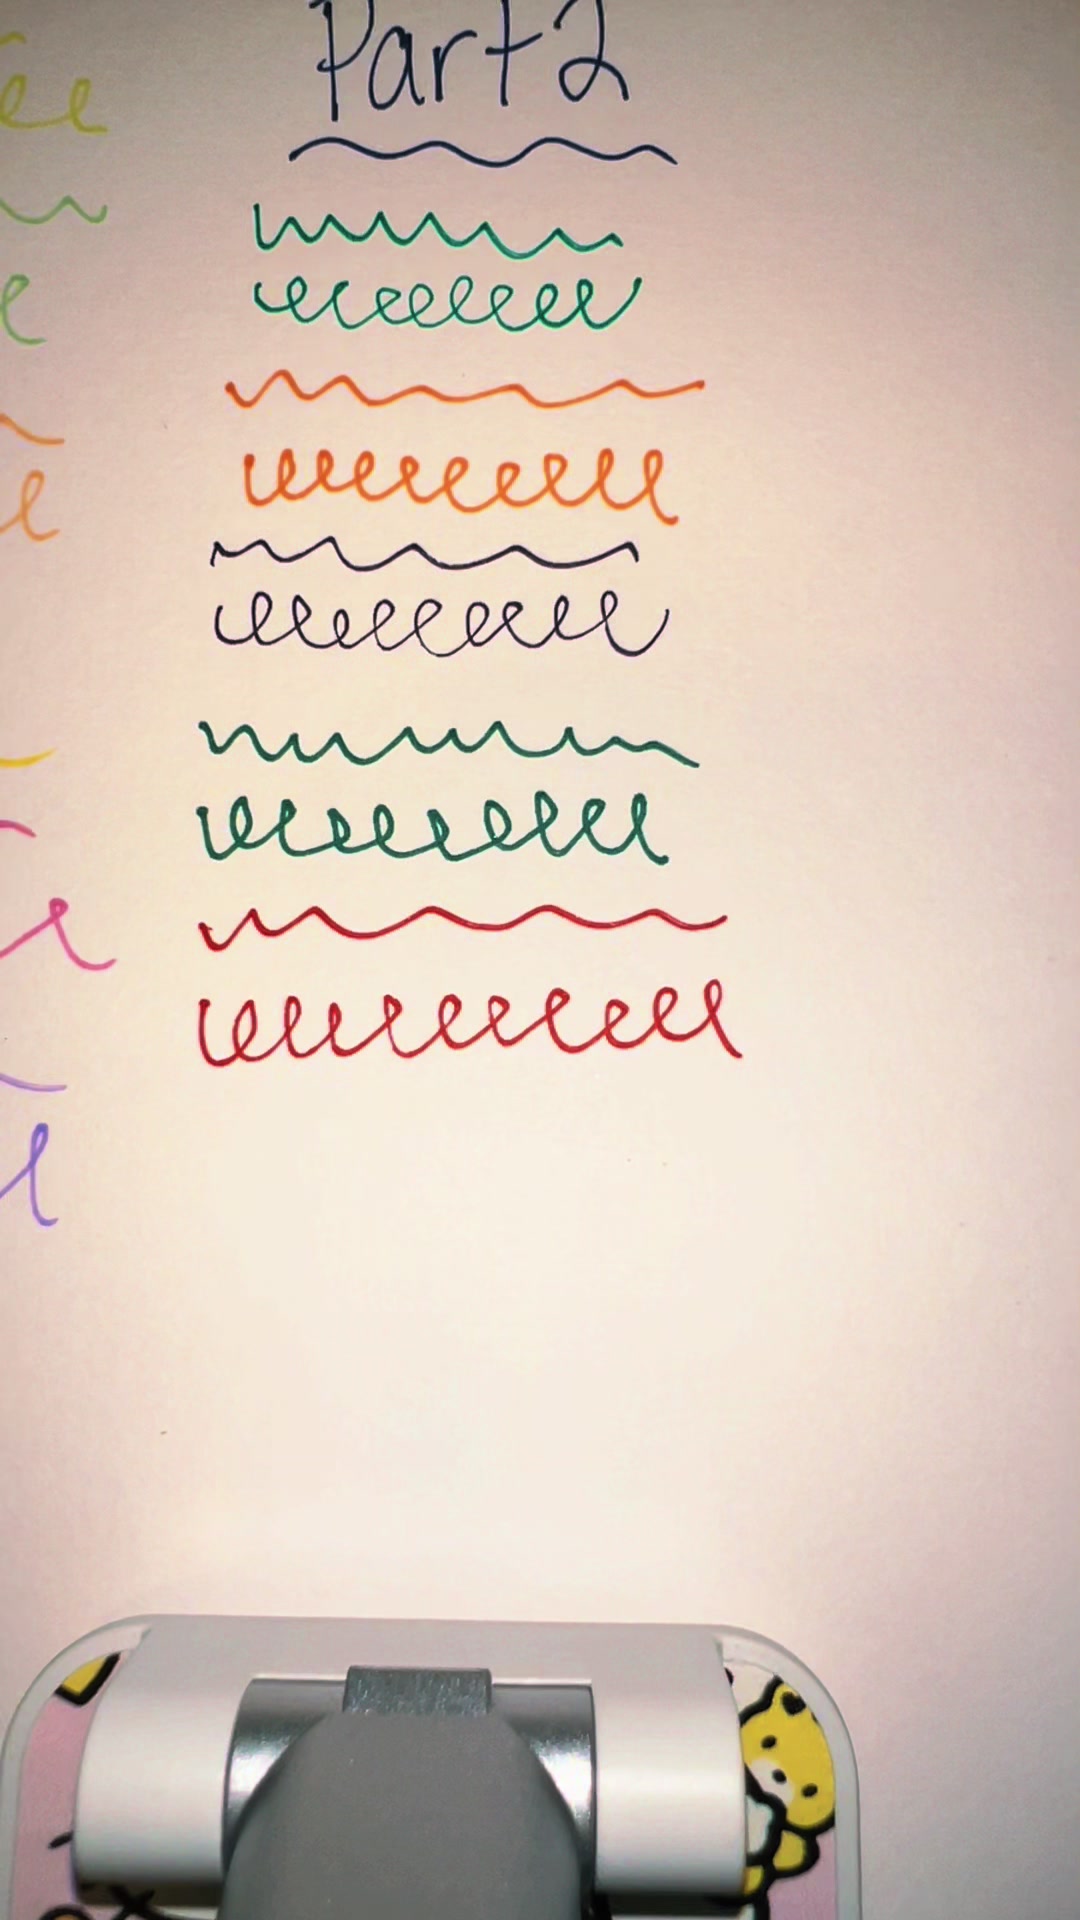 Part 2